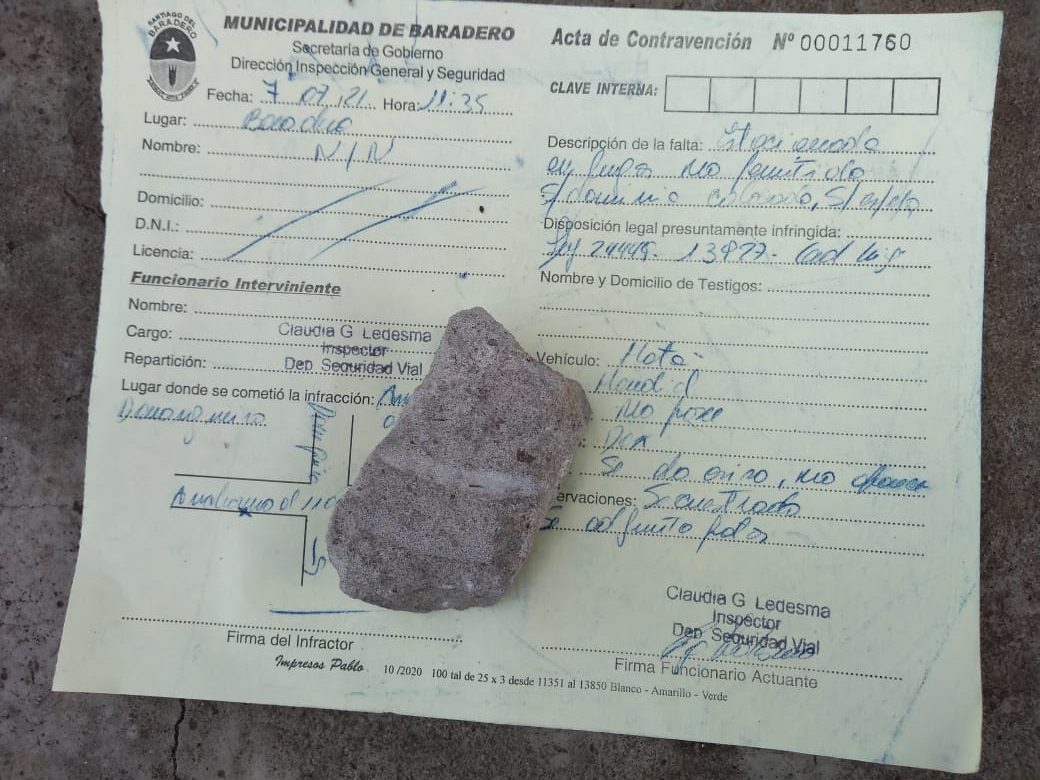 SANTIAGO DEL
BARADERO
MUNICIPALIDAD DE BARADERO
Secretaría de Gobierno
Dirección Inspección General y Seguridad
Fecha: 7 07 21 Hora: 11:35
Lugar: Baradero
Nombre: N/N
Domicilio:
D.N.I.:
Licencia:
Funcionario Interviniente
Nombre:
Cargo:
Repartición:
Claudia G Ledesma
Inspector
Dep Seguridad Vial
Lugar donde se cometió la infracción:
Firma del Infractor
Acta de Contravención Nº 00011760
CLAVE INTERNA:
Descripción de la falta: Estacionado
en lugar no permitido
S/dominio colocado, S/espejo
Disposición legal presuntamente infringida:
Ley 24449- 13927-
Nombre y Domicilio de Testigos:
Vehículo: Moto-
no posee
Se da aviso, no
ervaciones: Secuestrado
Se adjunta
Claudia G Ledesma
Inspector
Dep Seguridad Vial
Firma Funcionario Actuante
Impresos Pablo 10/2020 100 tal de 25 x 3 desde 11351 al 13850 Blanco - Amarillo - Verde